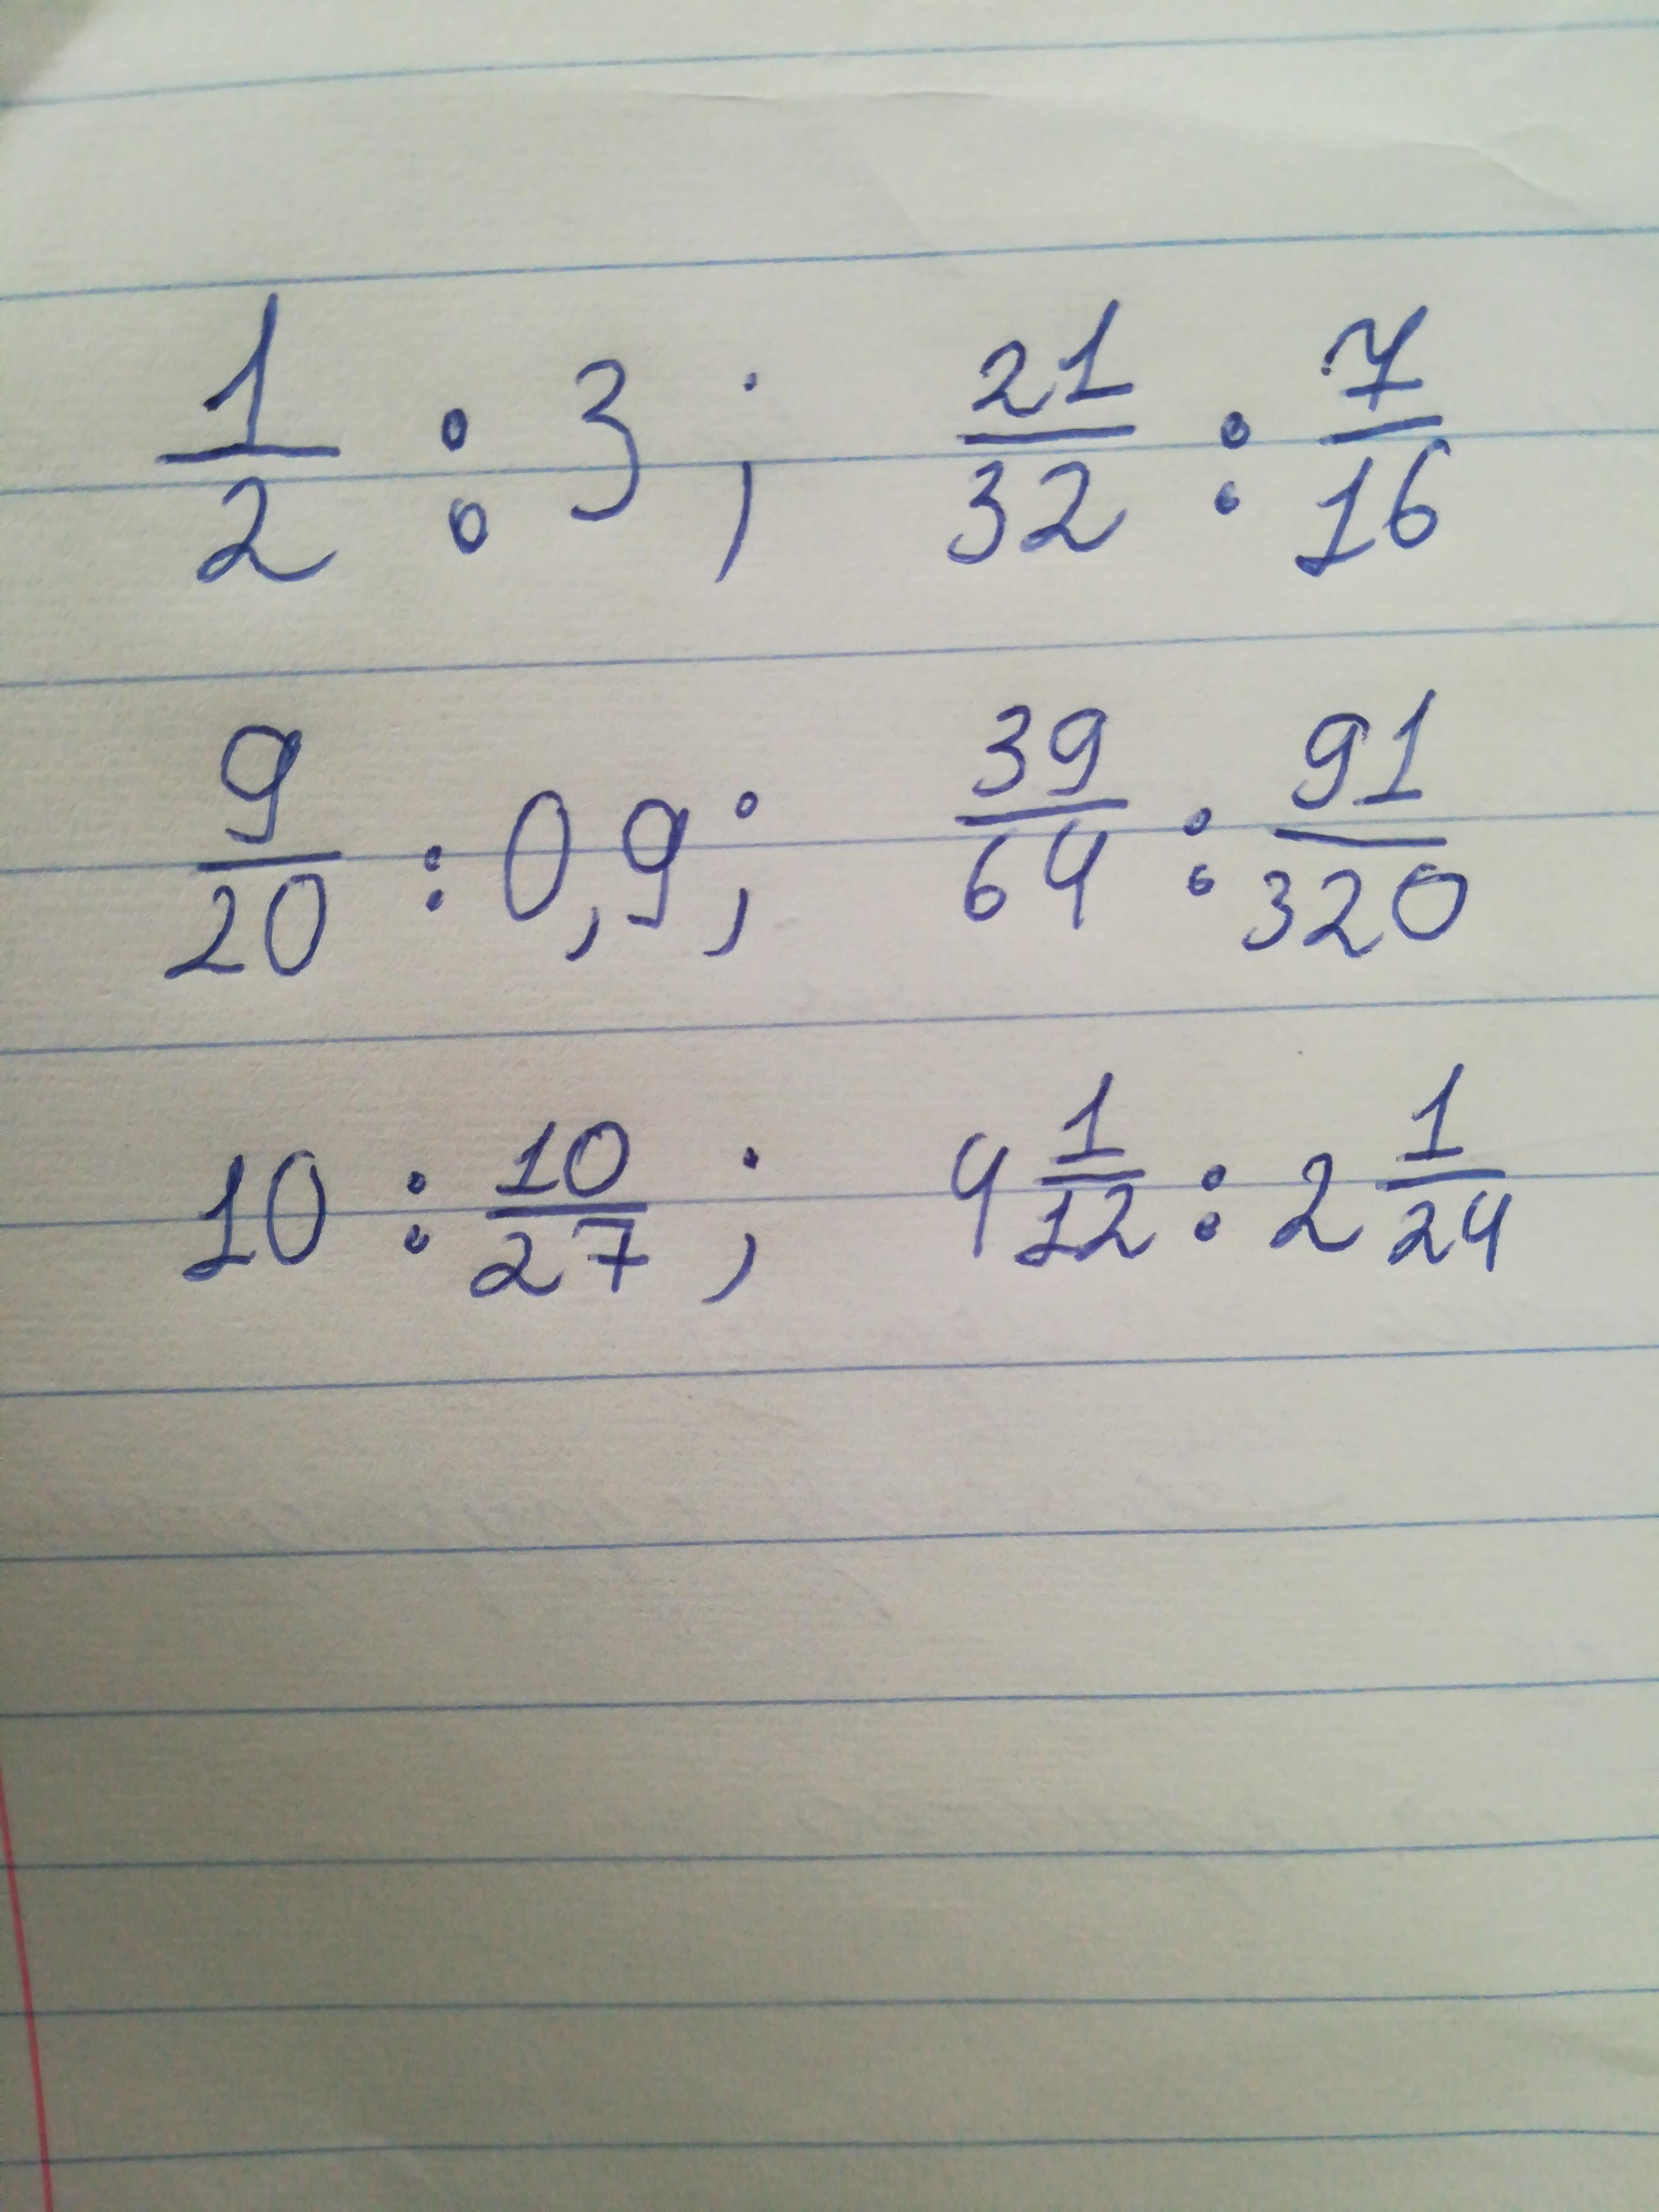 1/2 : 3 ; 21/32 : 7/16
9/20 : 0,9 ; 39/64 : 91/320
10 : 10/27 ; 4 1/12 : 2 1/24